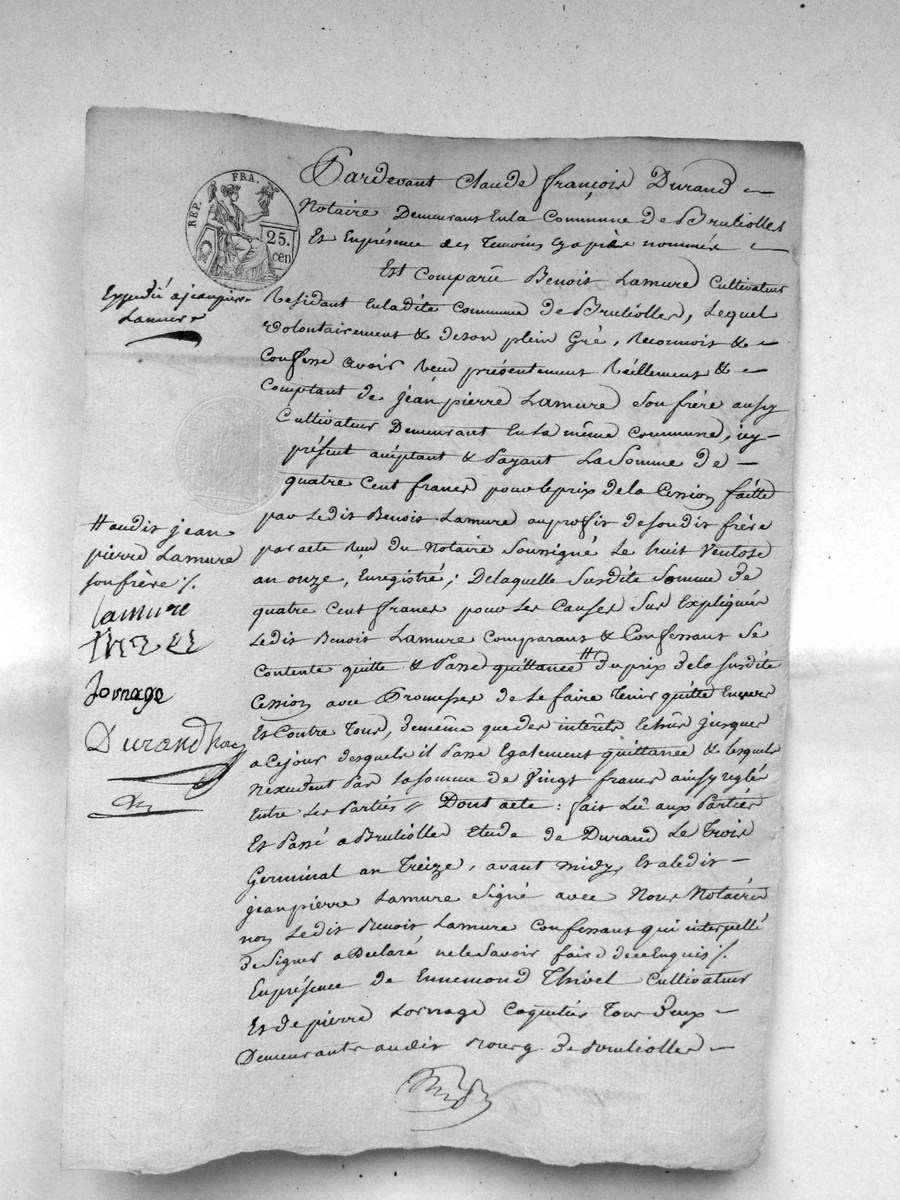 REP. FRA.
25.
cen
Pardevant Claude françois Durand
Notaire Demeurant En la Commune de Brulioles
Et En présence des Temoins Cy après nommés
Est Comparû Benoit Lamure Cultivateur
Residant En ladite Commune de Brulioles, Lequel
volontairement & de son plein Gré, Reconnoit &
Confesse avoir Reçu présentement Réellement &
Comptant de jean pierre Lamure son frère aussy
Cultivateur Demeurant En la même Commune, icy
présent acceptant & Payant La Somme de
quatre Cent francs pour le prix de la Cession faitte
par Ledit Benoit Lamure au profit de son dit frère
par acte Reçu du Notaire Soussigné Le huit Ventose
an onze, Enregistré; De laquelle Susdite Somme de
quatre Cent francs pour Les Causes Sus Expliquées
Ledit Benoit Lamure Comparant & Confessant Se
Contente quitte & Passe quittance # du prix de la Susdite
Cession avec Promesse de Le faire Tenir quitte Envers
Et Contre Tous, de même que des intérêts Echus jusques
a Ce jour desquels il Passe Egalement quittance & Lesquels
n'excedent Pas La Somme de Vingt francs ainsy reglés
Entre Les Parties // Dont acte : fait Lû aux Parties
Et Passé a Brulioles Etude de Durand Le Trois
Germinal an Treize, avant midy, Et a Ledit
jean pierre Lamure Signé avec Nous Notaire
non Ledit Benoit Lamure Confessant qui interpellé
de Signer a Déclaré ne le Savoir faire de ce Enquis %.
En présence de Ennemond Thivel Cultivateur
Et de pierre Lornage Coquetier Tous deux
Demeurants audit Bourg de Brulioles
Expedié a jean pierre
Lamure
# audit jean
pierre Lamure
son frère %.
lamure
Thivel
Lornage
Durand Not